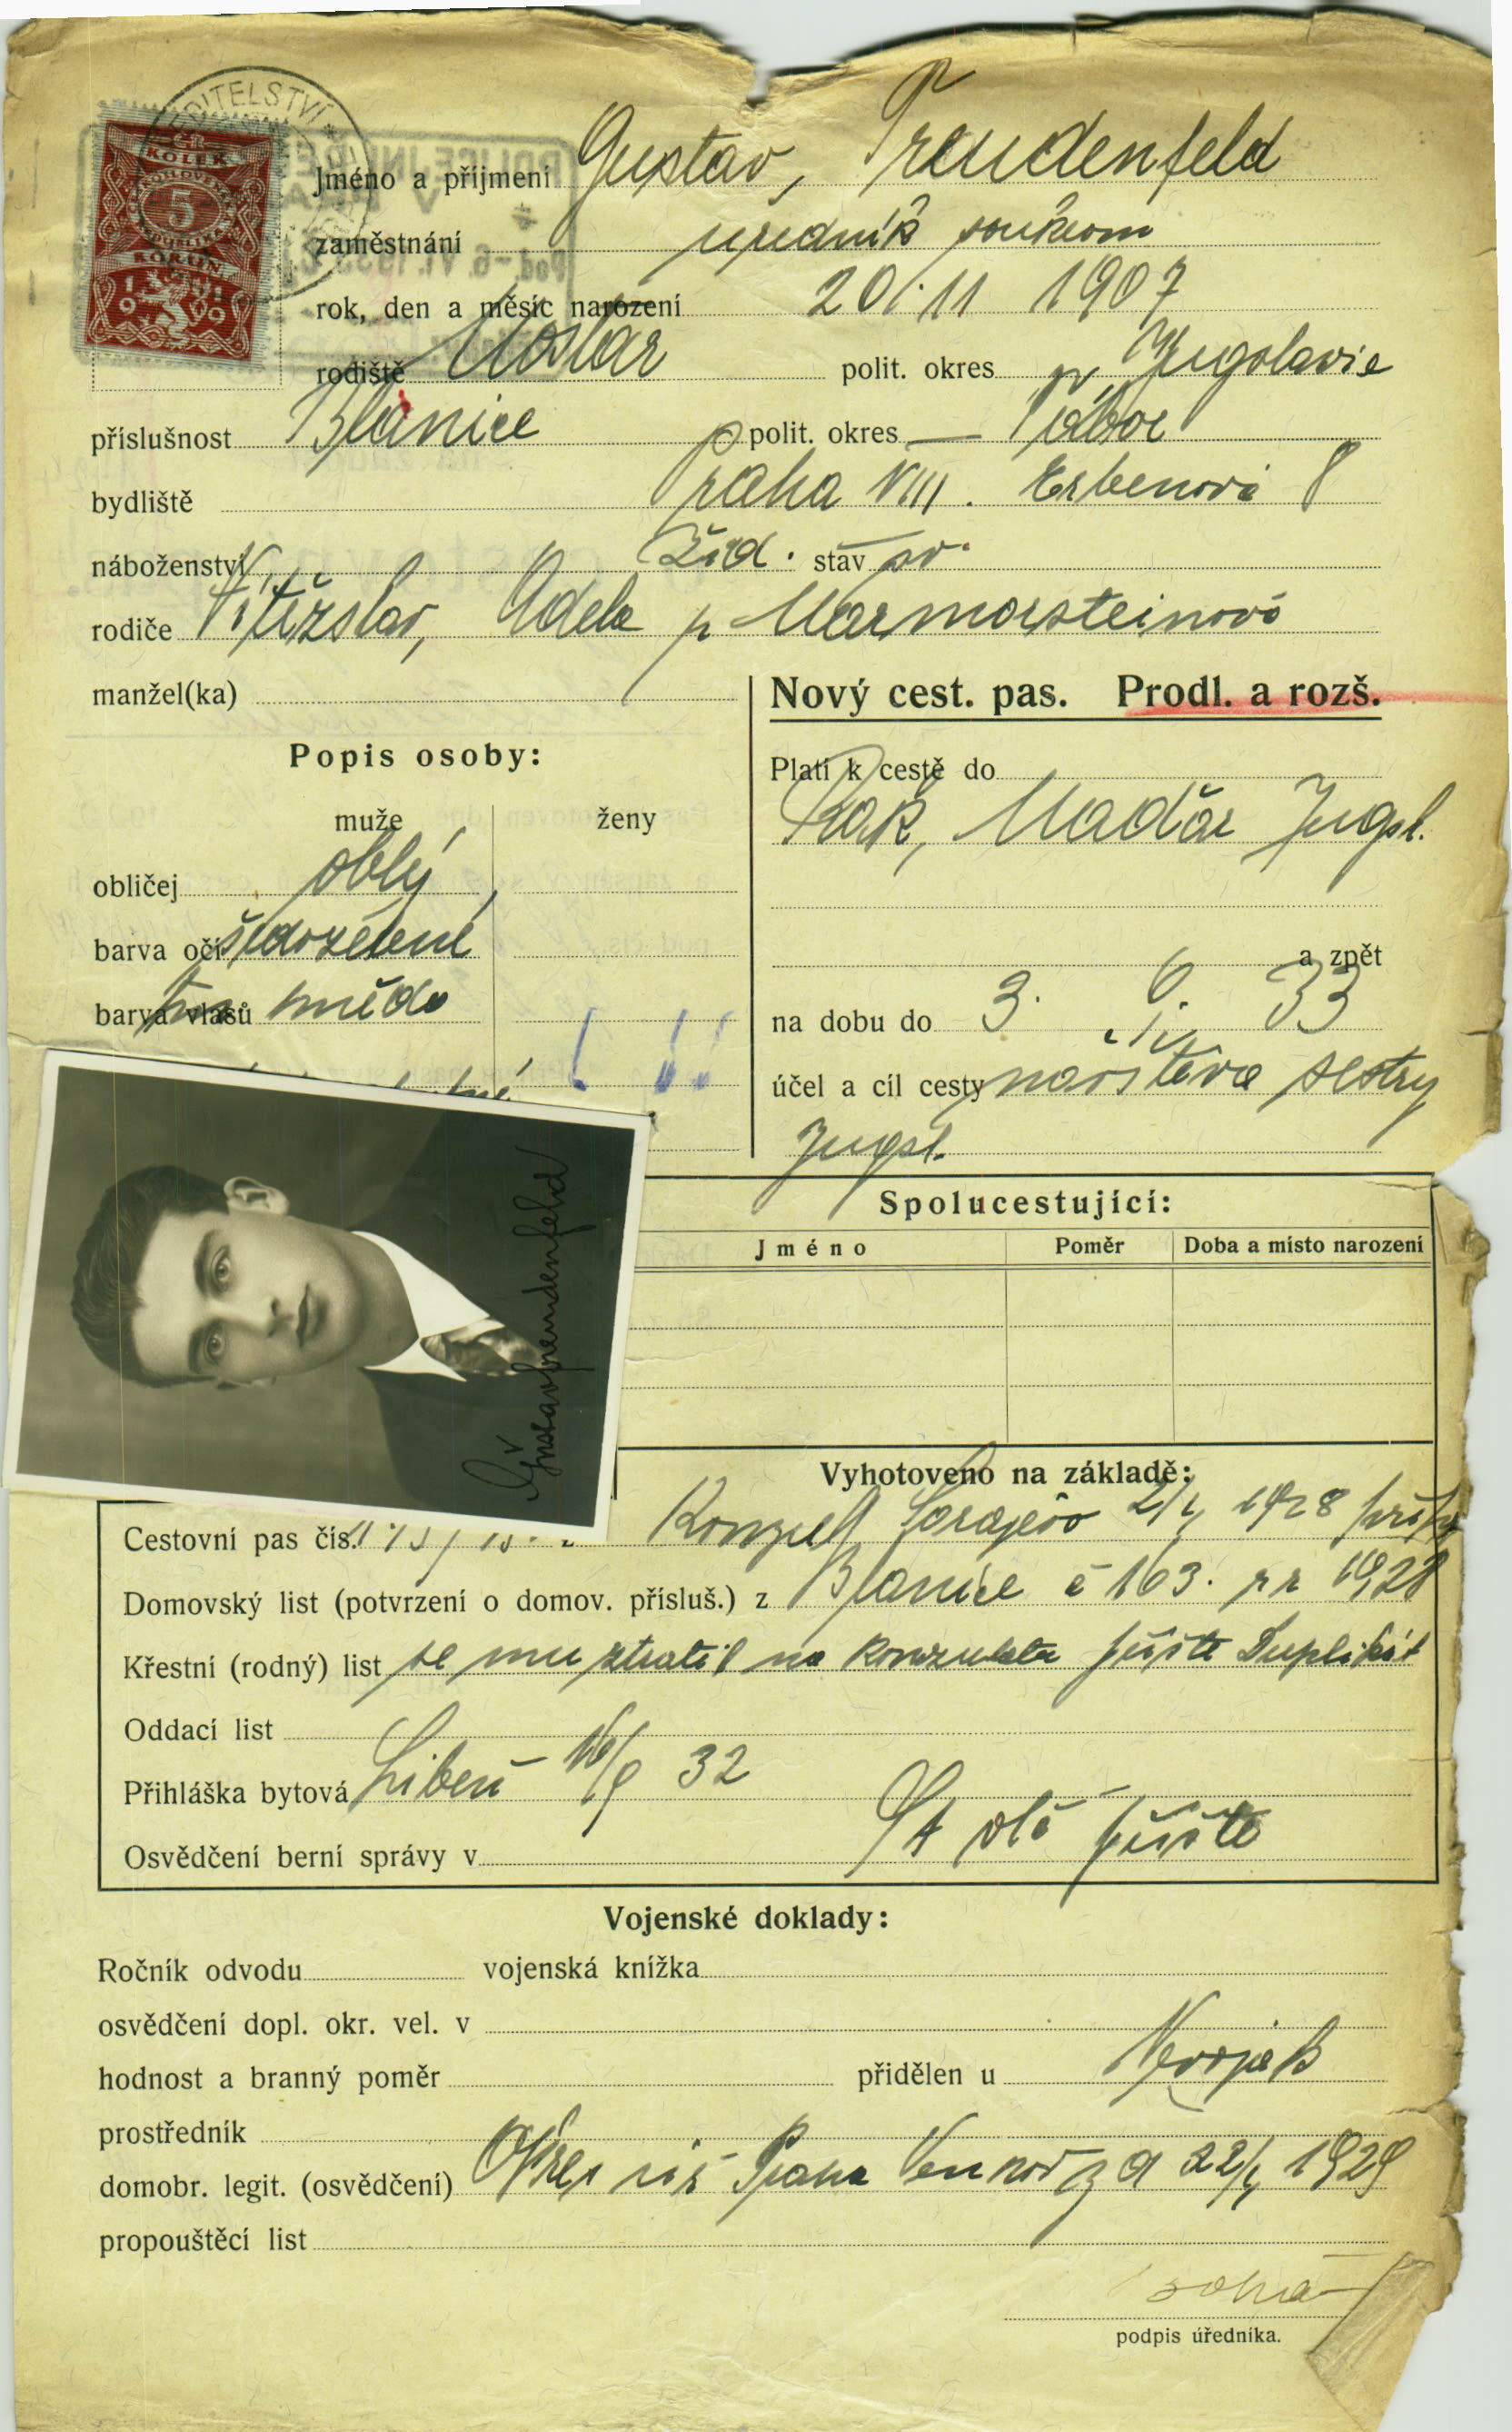 KOLEK
5
KORUN
1919
Jméno a příjmení Gustav, Freudenfeld
zaměstnání úředník soukrom
rok, den a měsíc narození 20/11 1907
rodiště Mostar polit. okres v Jugolavie
příslušnost Blanice polit. okres — Tábor
bydliště Praha VIII. Erbenova 8
náboženství žid. stav sv.
rodiče Vítězslav, Adela r Marmorsteinová
manžel(ka)
Nový cest. pas. Prodl. a rozš.
Popis osoby:
muže ženy
obličej oblý
barva očí šedozelené
barva vlasů tm hnědo
Platí k cestě do
Rak, Maďar Jugsl.
a zpět
na dobu do 3. 6. 33
účel a cíl cesty návštěva sestry
Jugsl.
Gustav Freudenfeld
Spolucestující:
Jméno Poměr Doba a místo narození
Vyhotoveno na základě:
Cestovní pas čís. Konzul Sarajevo 1928
Domovský list (potvrzení o domov. přísluš.) z Blanice č 163. z r 1928
Křestní (rodný) list se mu ztratil na konzulátu příště Duplikát
Oddací list
Přihláška bytová Libeň 16/9 32
Osvědčení berní správy v příště
Vojenské doklady:
Ročník odvodu vojenská knížka
osvědčení dopl. okr. vel. v
hodnost a branný poměr přidělen u Nevoják
prostřednik
domobr. legit. (osvědčení) Okres úř Praha Venkov 1929
propouštěcí list
podpis úředníka.